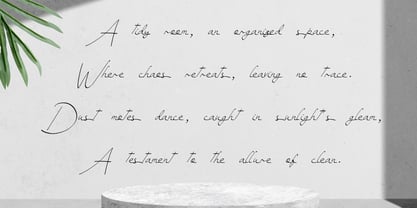 A tidy room, an organized space,
Where chaos retreats, leaving no trace.
Dust motes dance, caught in sunlight's gleam,
A testament to the allure of clean.